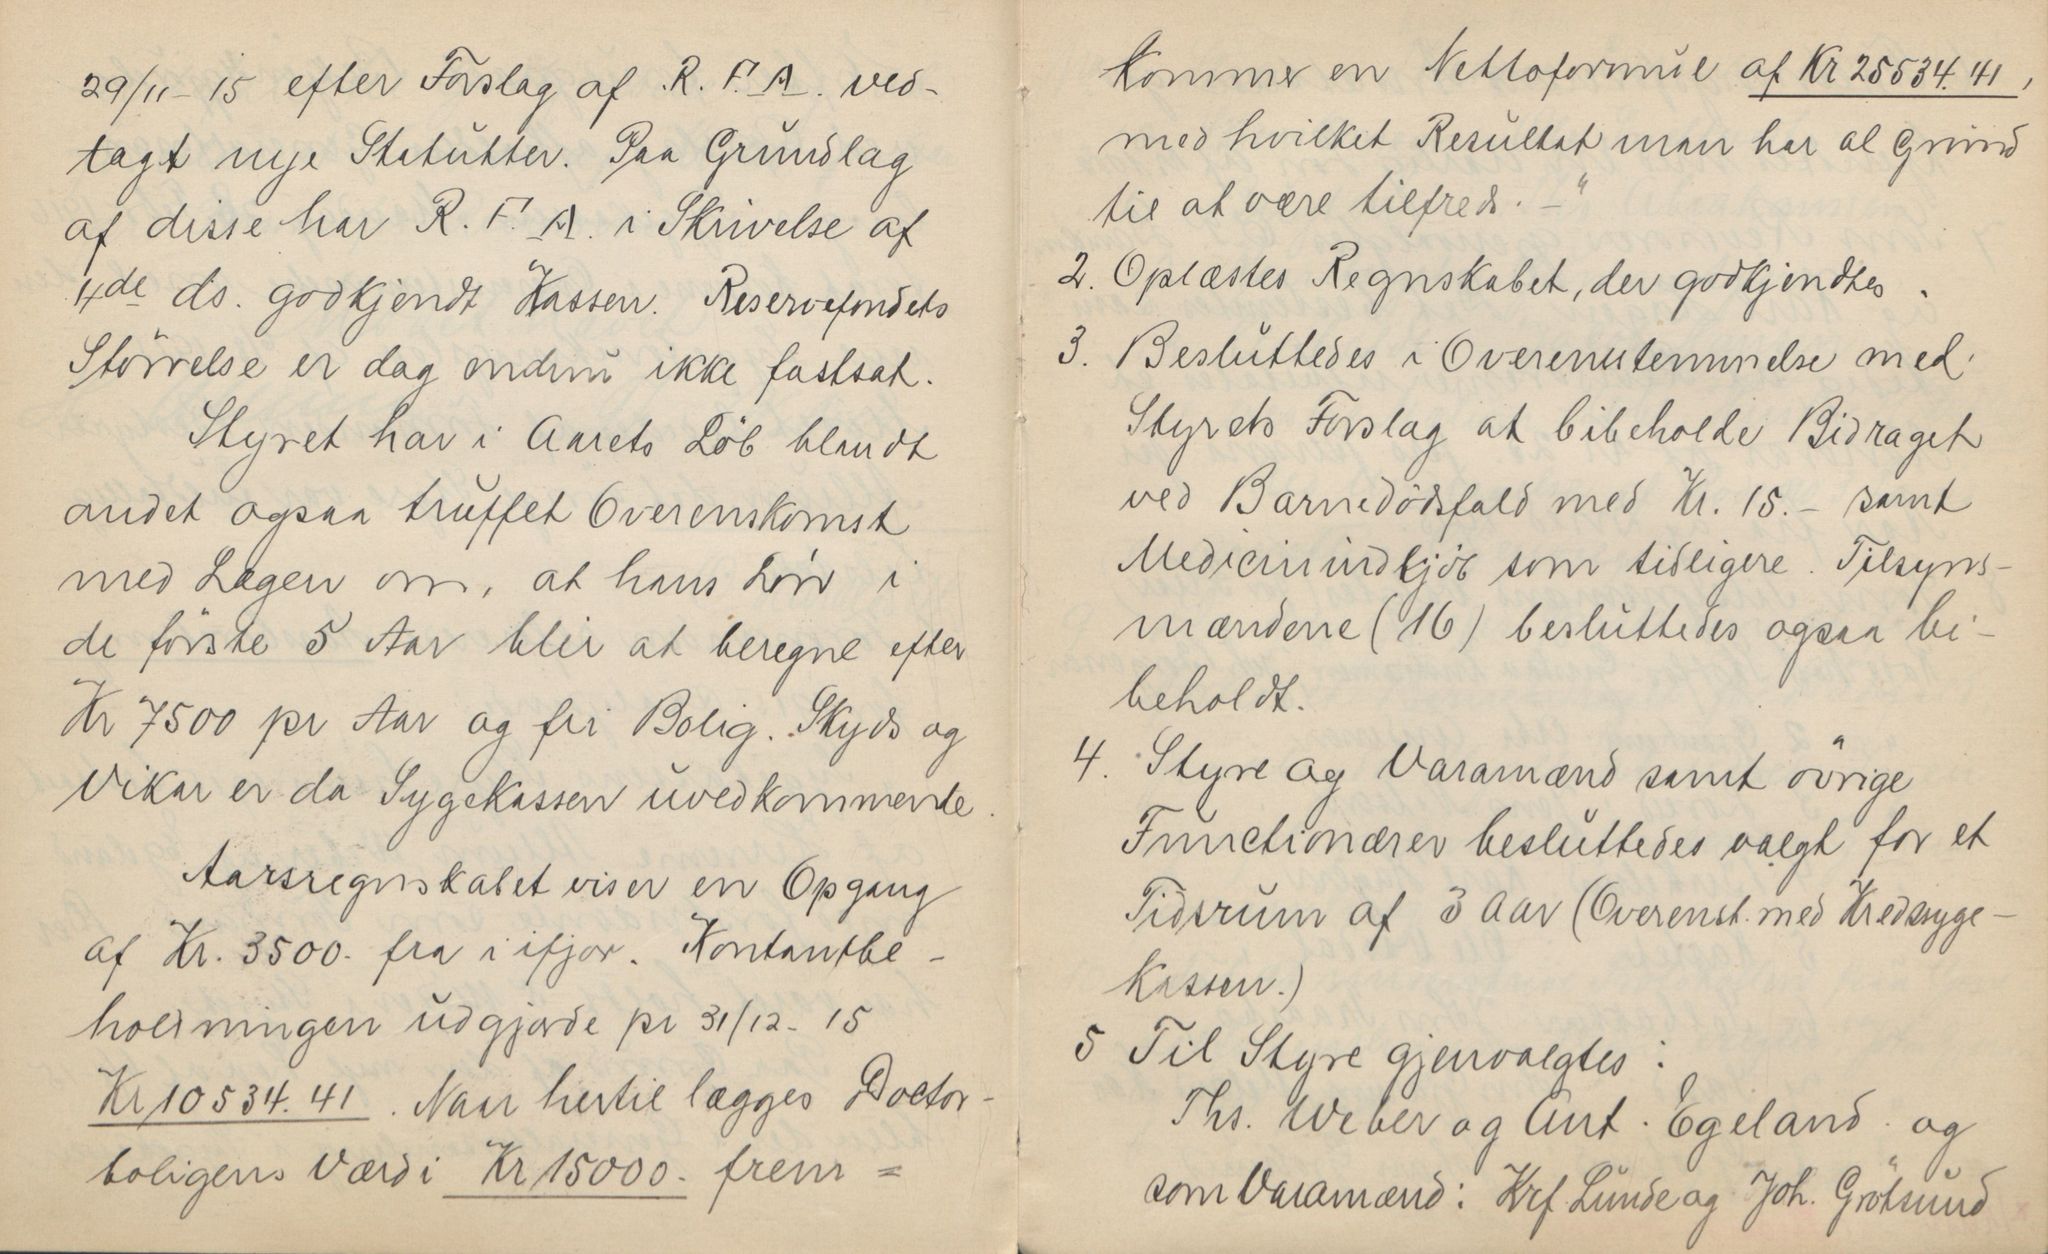 29/11-15 efter Forslag af R. F. A. ved-
tagt nye Statutter. Paa Grundlag
af disse har R. F. A. i Skrivelse af
4de ds. godkjendt Kassen. Reservefondets
Störrelse er dag endnu ikke fastsat.
Styret har i Aarets Löb blandt
andet ogsaa truffet Overenskomst
med Lægen om, at hans Lön i
de förste 5 Aar blir at beregne efter
Kr 7500 pr Aar og fri Bolig. Skyds og
Vikar er da Sygekassen uvedkommende.
Aarsregnskabet viser en Opgang
af Kr. 3500.- fra i ifjor. Kontantbe-
holdningen udgjorde pr 31/12-15
Kr 10534.41. Naar hertil lægges Doctor-
boligens Værdi Kr 15000.- frem=
kommer en Nettoformue af Kr 25534.41,
med hvilket Resultat man har al Grund
til at være tilfreds. -"
2. Oplæstes Regnskabet, der godkjendtes.
3. Besluttedes i Overensstemmelse med
Styrets Forslag at bibeholde Bidraget
ved Barnedödsfald med Kr. 15.- samt
Medicinindkjöb som tidligere. Tilsyns-
mændene (16) besluttedes ogsaa bi-
beholdt.
4. Styre og Varamænd samt övrige
Functionærer besluttedes valgt for et
Tidsrum af 3 Aar (Overenst. med Kredssyge-
kassen.)
5 Til Styre gjenvalgtes:
Ths. Weber og Ant. Egeland og
som Varamænd: Krf Lunde og Joh. Grötsund